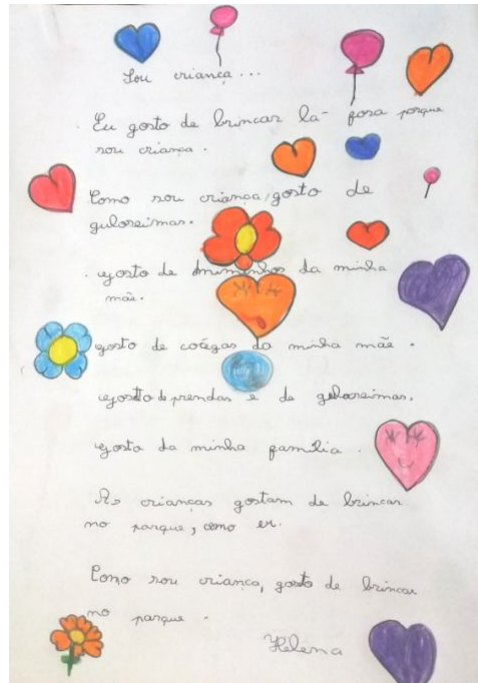 Sou criança...
Eu gosto de brincar lá fora porque
sou criança.
Como sou criança, gosto de
guloseimas.
gosto de miminhos da minha
mãe.
gosto de cocegas da minha mãe.
gosto de prendas e de guloseimas.
gosto da minha família.
As crianças gostam de brincar
no parque, como eu.
Como sou criança, gosto de brincar
no parque.
Helena